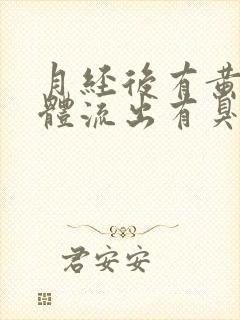 月經後有黃
體流出有臭
君安安